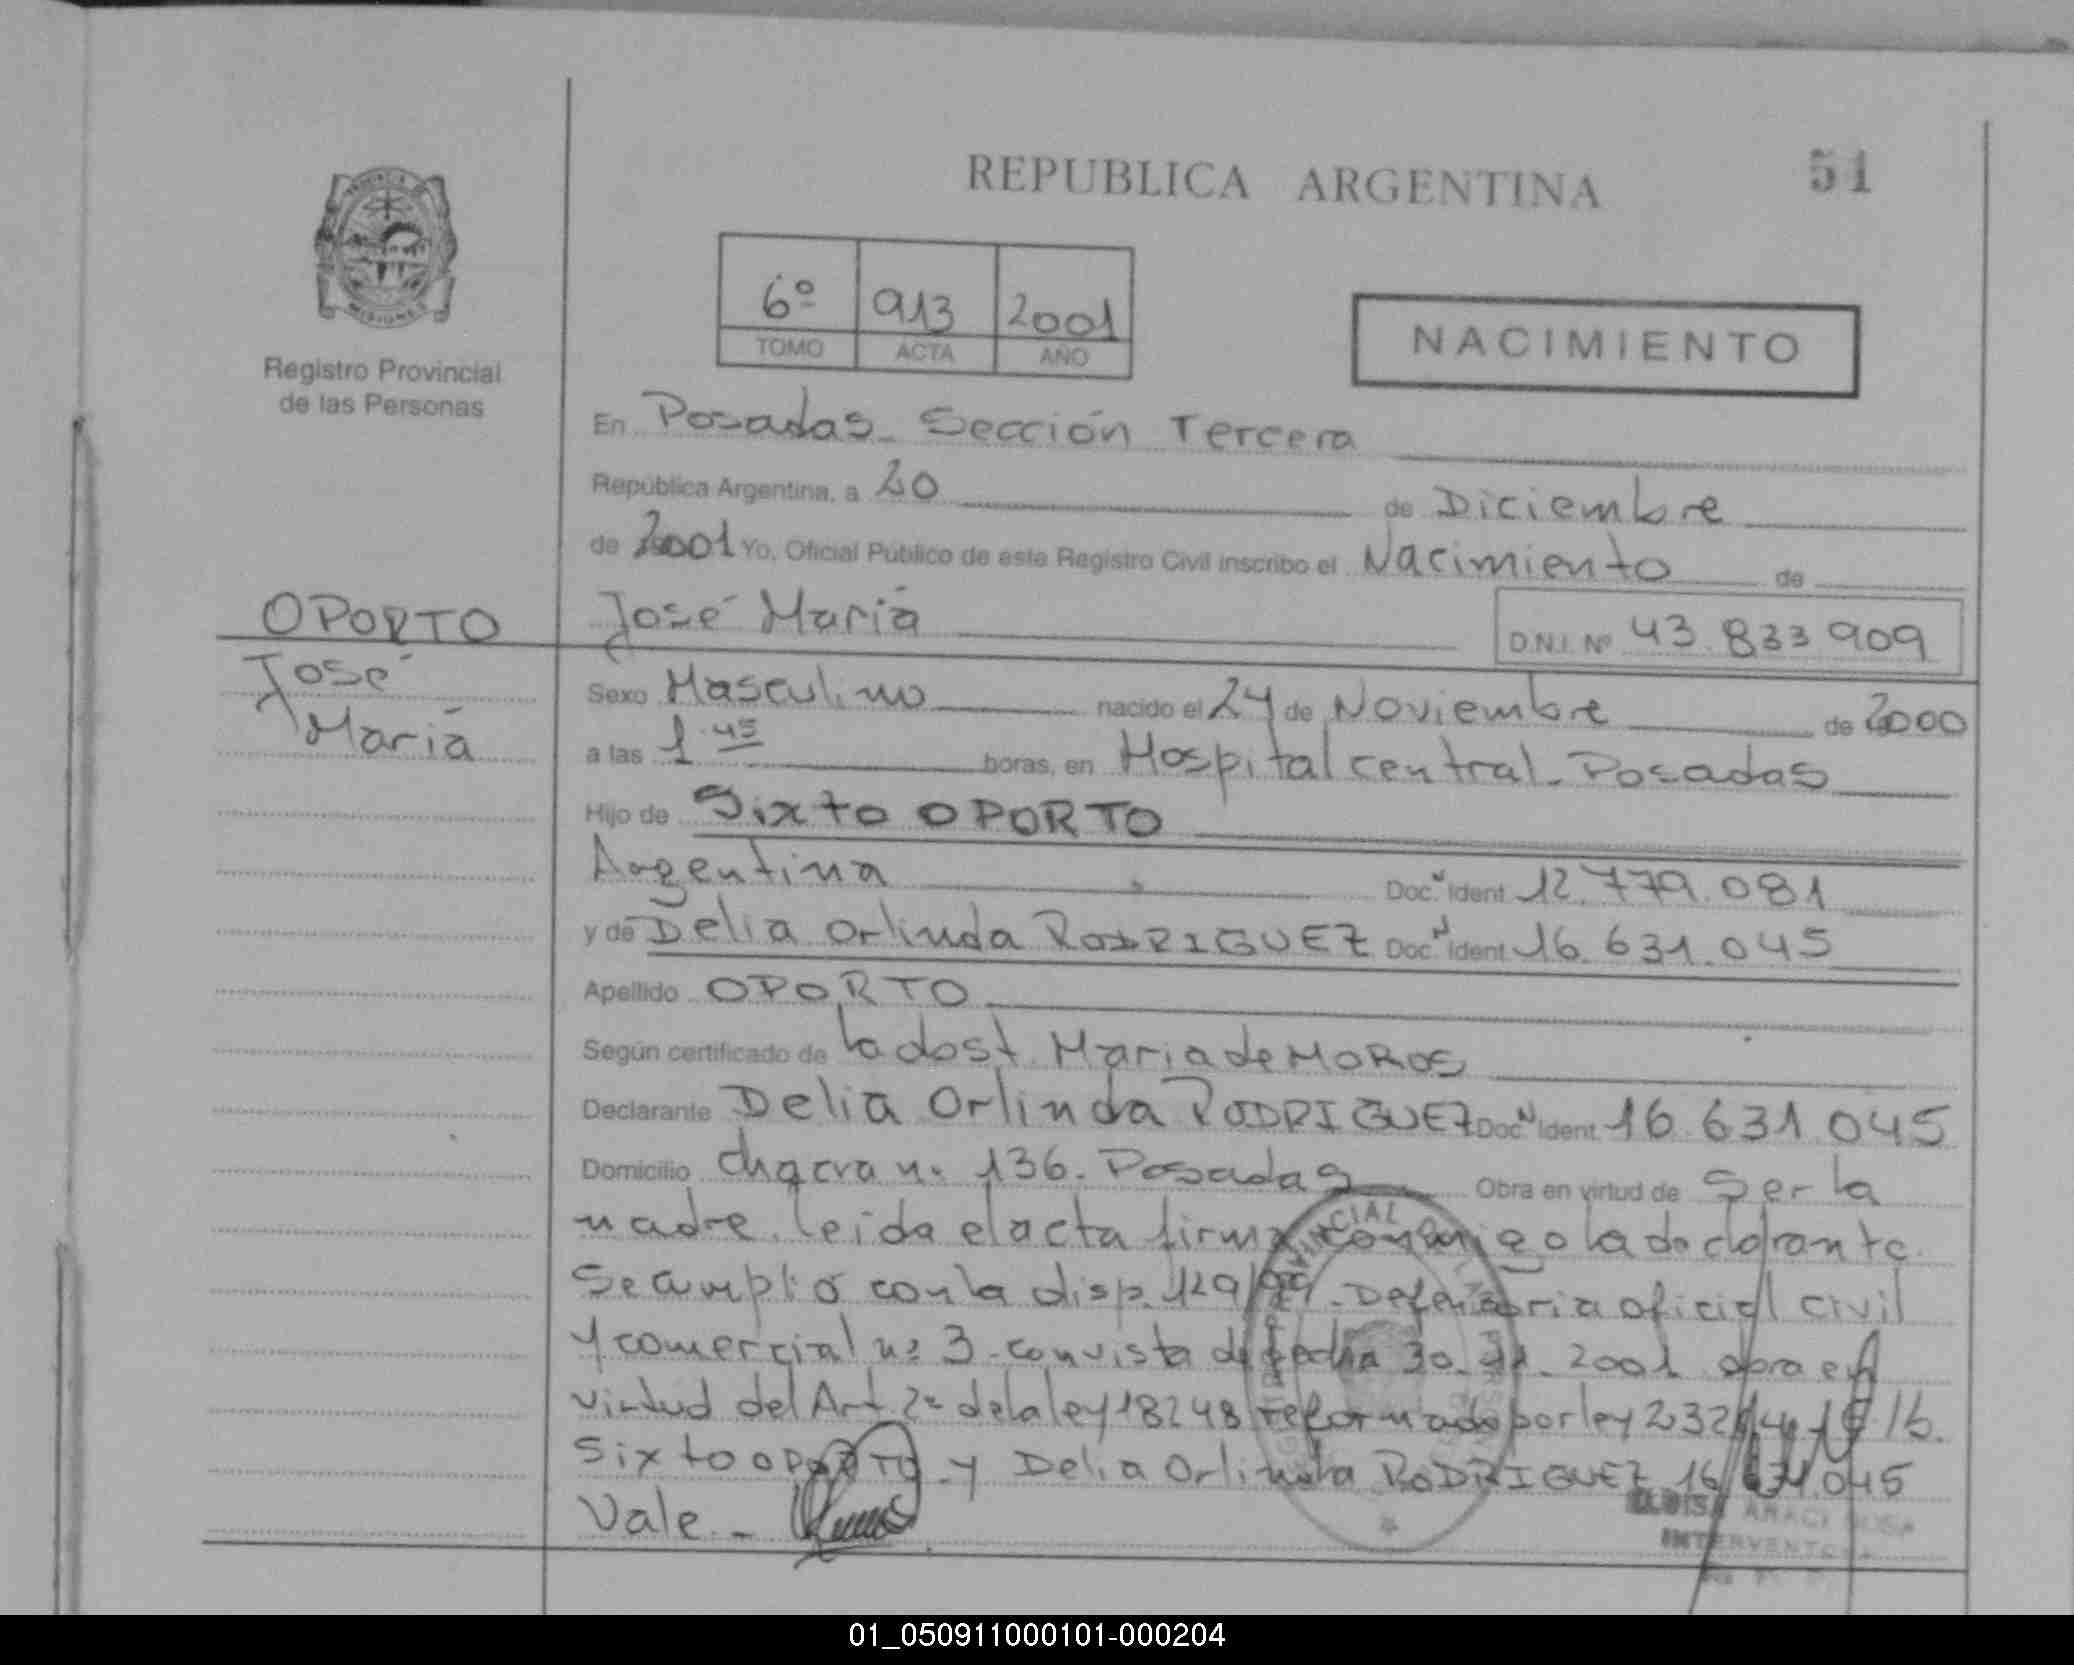 REPUBLICA ARGENTINA
51
6º 913 2001
TOMO ACTA AÑO
NACIMIENTO
MISIONES
Registro Provincial
de las Personas
En Posadas - Sección Tercera
República Argentina, a 20 de Diciembre
de 2001 Yo, Oficial Público de este Registro Civil inscribo el Nacimiento de
OPORTO
José María
José María D.N.I. Nº 43.833.909
Sexo Masculino nacido el 24 de Noviembre de 2000
a las 1.45 horas, en Hospital central - Posadas
Hijo de Sixto OPORTO
Argentina Doc. Ident. 12.779.081
y de Delia Orlinda RODRIGUEZ Doc. Ident 16.631.045
Apellido OPORTO
Según certificado de la obst. Maria de MOROS
Declarante Delia Orlinda RODRIGUEZ Doc. Ident. 16.631.045
Domicilio chacra nº 136. Posadas Obra en virtud de Ser la
madre. leida el acta firma conmigo la declarante.
Se cumplió con la disp. 129/99 - Defensoria oficial civil
y comercial nº 3 - con vista de fecha 30 2001 obra en
virtud del Art. 2º de la ley 18248 reformado por ley 23264
Sixto OPORTO y Delia Orlinda RODRIGUEZ 16.631.045
Vale. -
INTERVENTORA
01_050911000101-000204